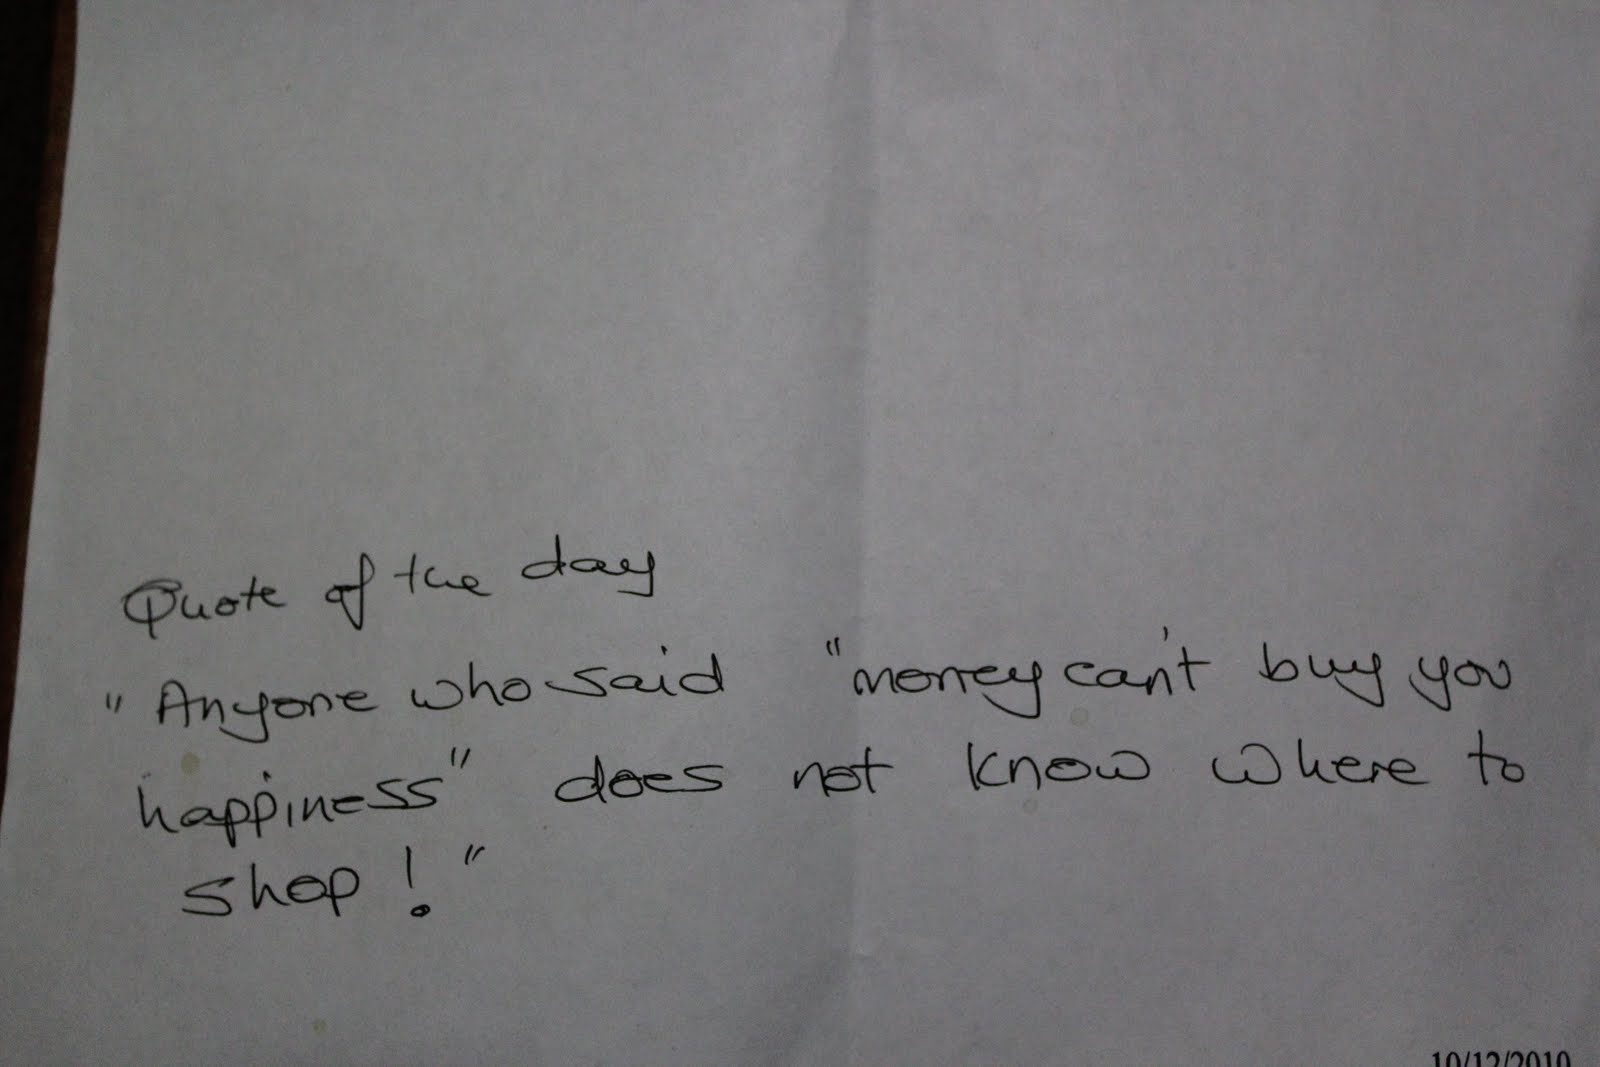 Quote of the day
"Anyone who said "money can't buy you
happiness" does not know where to
shop!"
10/12/2010